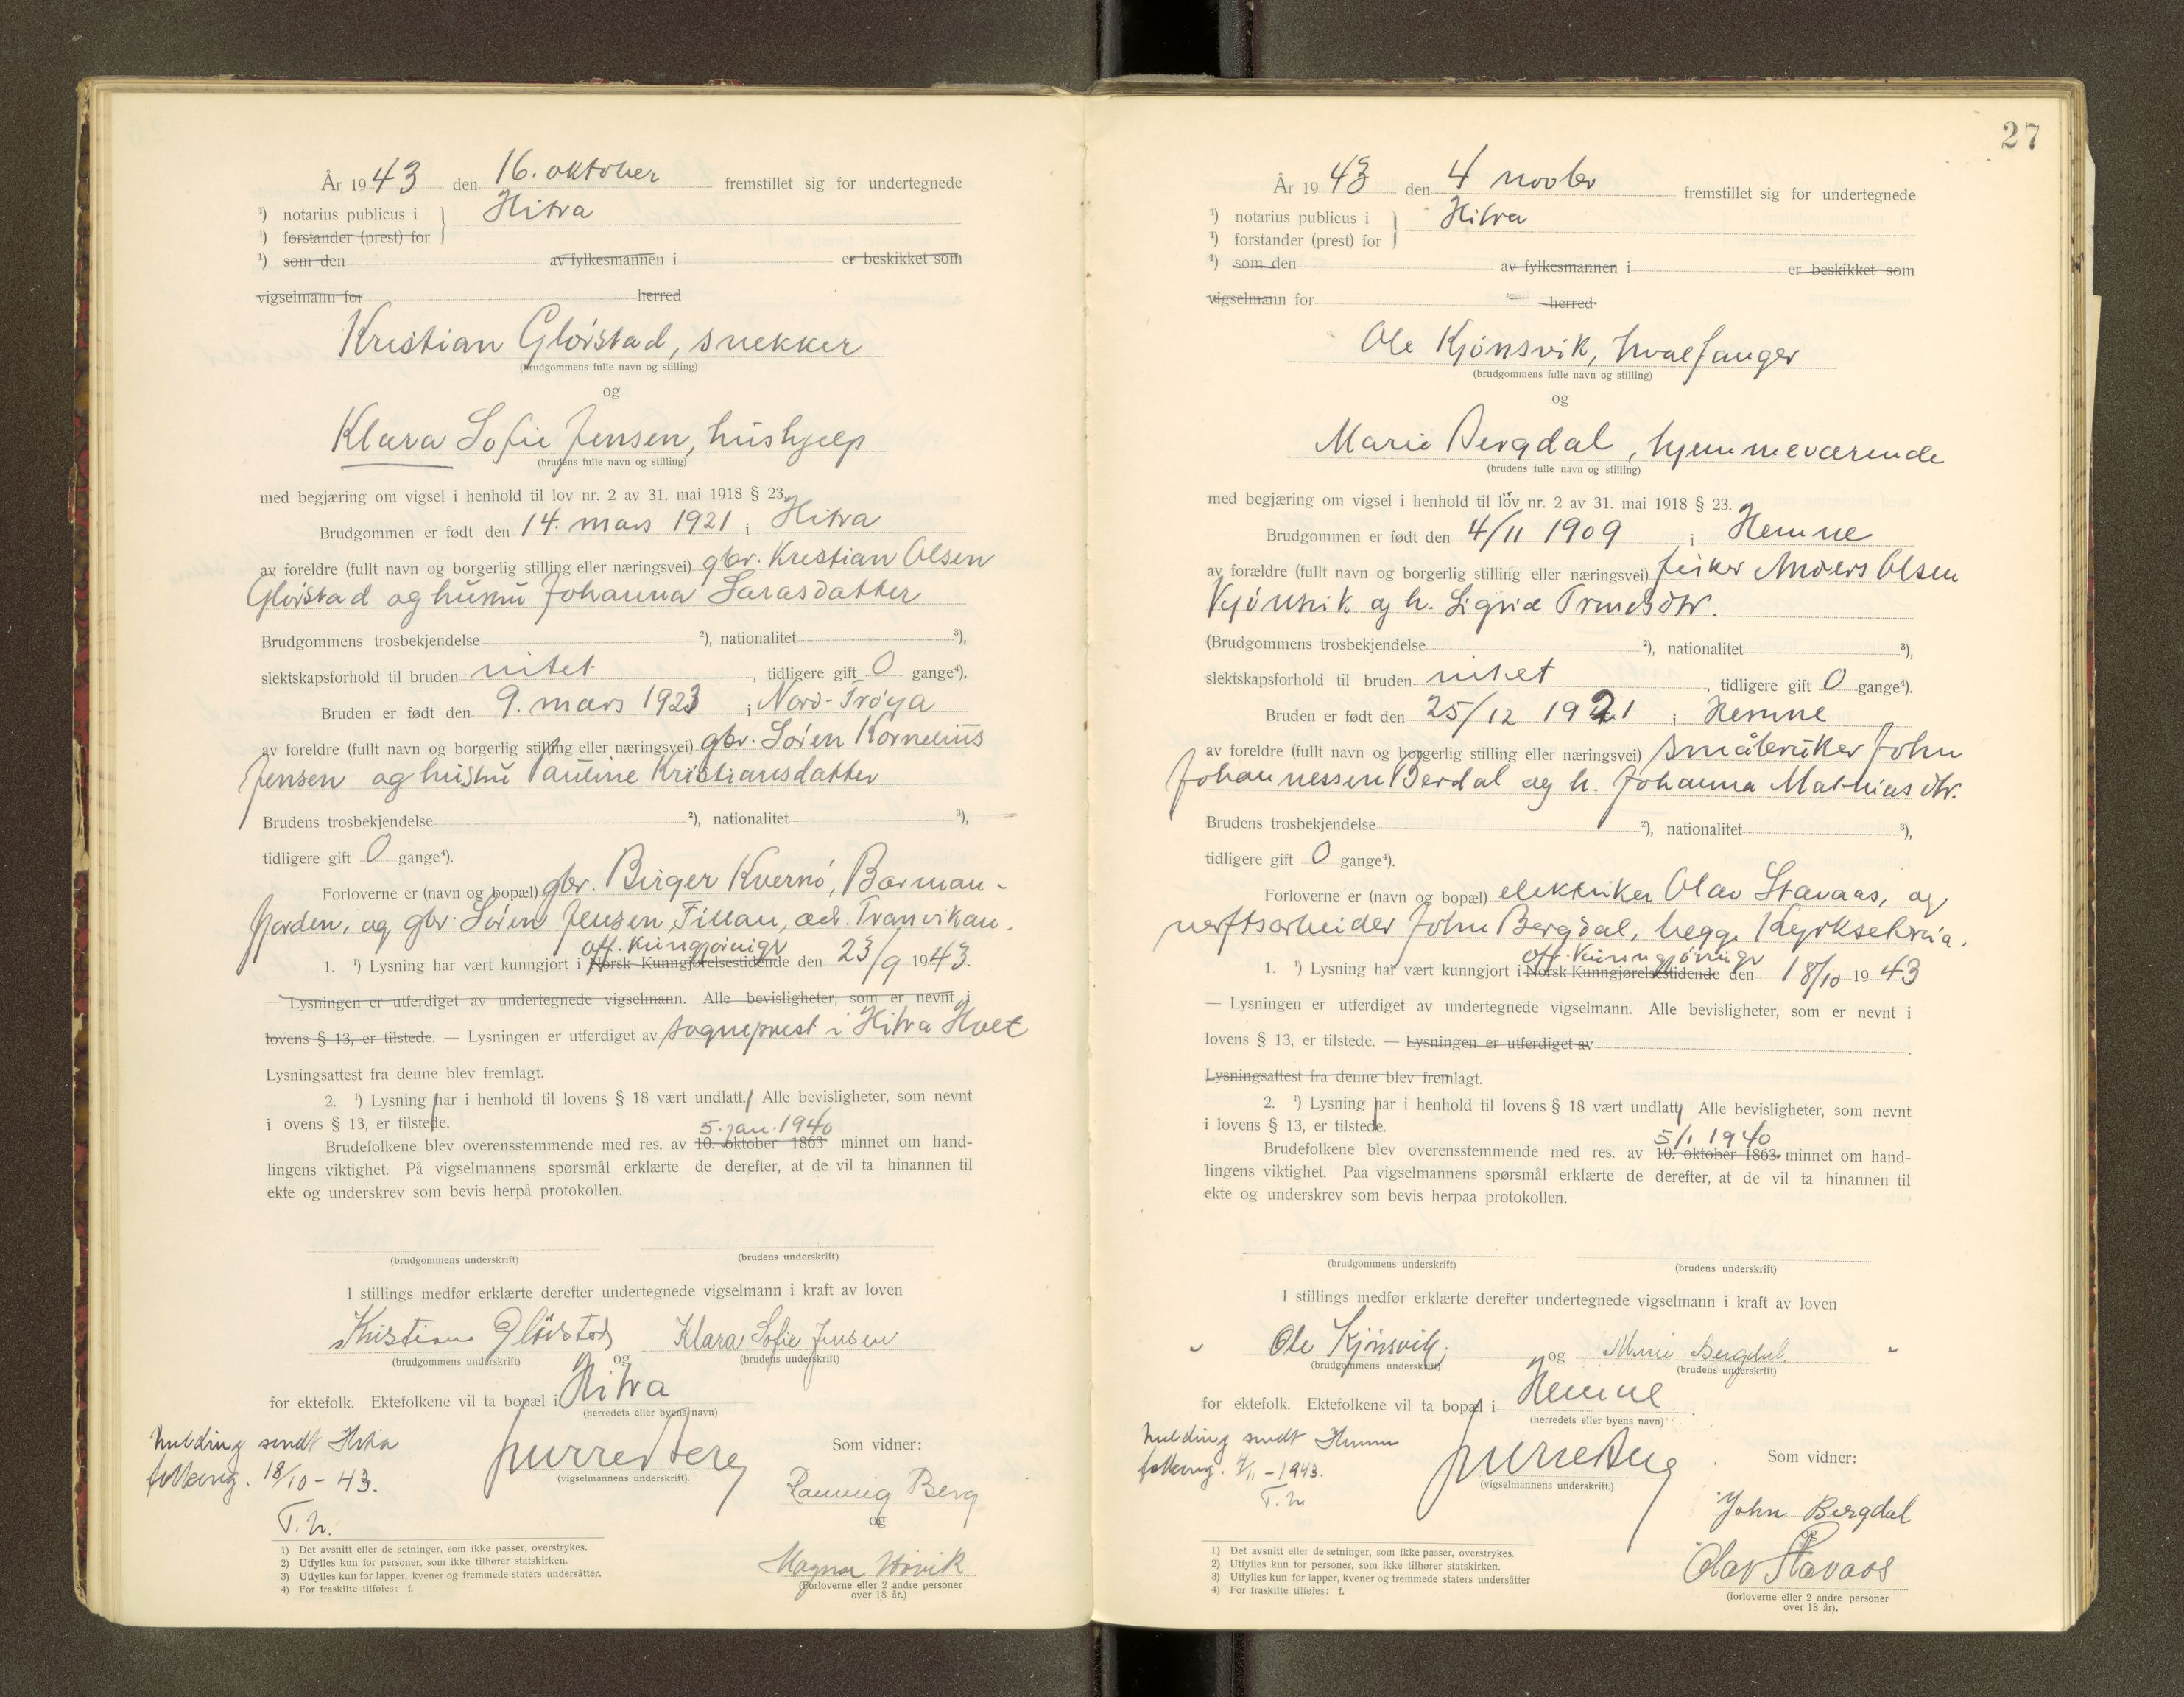 År 1943 den 16. oktober fremstillet sig for undertegnede
¹) notarius publicus i } Hitra
¹) forstander (prest) for
¹) som den av fylkesmannen i er beskikket som
vigselmann for herred
Kristian Gløistad, snekker
(brudgommens fulle navn og stilling)
og
Klara Sofie Jensen, hushjelp
(brudens fulle navn og stilling)
med begjæring om vigsel i henhold til lov nr. 2 av 31. mai 1918 § 23.
Brudgommen er født den 14. mars 1921 i Hitra
av foreldre (fullt navn og borgerlig stilling eller næringsvei) gbr. Kristian Olsen
Gløistad og hustru Johanna Larasdatter
Brudgommens trosbekjendelse ²), nationalitet ³),
slektskapsforhold til bruden intet, tidligere gift 0 gange⁴).
Bruden er født den 9. mars 1923 i Nord-Frøya
av foreldre (fullt navn og borgerlig stilling eller næringsvei) gbr. Søren Kornelius
Jensen og hustru Pauline Kristiansdatter
Brudens trosbekjendelse ²), nationalitet ³),
tidligere gift 0 gange⁴).
Forloverne er (navn og bopæl) gbr. Birger Kvernø, Barman-
fjorden, og gbr. Søren Jensen, Fillan, adr. Tranvikan.
off. kunngjøringer
1. ¹) Lysning har vært kunngjort i Norsk Kunngjørelsestidende den 23/9 1943.
— Lysningen er utferdiget av undertegnede vigselmann. Alle bevisligheter, som er nevnt i
lovens § 13, er tilstede. — Lysningen er utferdiget av sogneprest i Hitra Holt
Lysningsattest fra denne blev fremlagt.
2. ¹) Lysning har i henhold til lovens § 18 vært undlatt. Alle bevisligheter, som nevnt
i ovens § 13, er tilstede.
5. jan. 1940
Brudefolkene blev overensstemmende med res. av 10. oktober 1863 minnet om hand-
lingens viktighet. På vigselmannens spørsmål erklærte de derefter, at de vil ta hinannen til
ekte og underskrev som bevis herpå protokollen.
(brudgommens underskrift) (brudens underskrift)
I stillings medfør erklærte derefter undertegnede vigselmann i kraft av loven
Kristian Gløistad Klara Sofie Jensen
(brudgommens underskrift) og (brudens underskrift)
for ektefolk. Ektefolkene vil ta bopæl i Hitra
(herredets eller byens navn)
Melding sendt Hitra
folkereg. 18/10-43.
T.h.
(vigselmannens underskrift).
Som vidner:
Rannvig Berg
og
Magnar Hovik
(Forloverne eller 2 andre personer
over 18 år.)
1) Det avsnitt eller de setninger, som ikke passer, overstrykes.
2) Utfylles kun for personer, som ikke tilhører statskirken.
3) Utfylles kun for lapper, kvener og fremmede staters undersåtter.
4) For fraskilte tilføies: f.
27
År 1943 den 4 novbr fremstillet sig for undertegnede
¹) notarius publicus i } Hitra
¹) forstander (prest) for
¹) som den av fylkesmannen i er beskikket som
vigselmann for herred
Ole Kjønsvik, hvalfanger
(brudgommens fulle navn og stilling)
og
Marie Bergdal, hjemmeværende
(brudens fulle navn og stilling)
med begjæring om vigsel i henhold til lov nr. 2 av 31. mai 1918 § 23.
Brudgommen er født den 4/11 1909 i Hemne
av forældre (fullt navn og borgerlig stilling eller næringsvei) fisker Anders Olsen
Kjønsvik og h. Sigrid
Brudgommens trosbekjendelse ²), nationalitet ³),
slektskapsforhold til bruden intet, tidligere gift 0 gange⁴).
Bruden er født den 25/12 1921 i Hemne
av foreldre (fullt navn og borgerlig stilling eller næringsvei) småbruker John
Johannessen Berdal og h. Johanna Mathiasdtr.
Brudens trosbekjendelse ²), nationalitet ³),
tidligere gift 0 gange⁴).
Forloverne er (navn og bopæl) elektriker Olav Stavaas, og
verftsarbeider John Bergdal, begge Kyrksæterøra.
off. kunngjøringer
1. ¹) Lysning har vært kunngjort i Norsk Kunngjørelsestidende den 18/10 1943
— Lysningen er utferdiget av undertegnede vigselmann. Alle bevisligheter, som er nevnt i
lovens § 13, er tilstede. — Lysningen er utferdiget av
Lysningsattest fra denne blev fremlagt.
2. ¹) Lysning har i henhold til lovens § 18 vært undlatt. Alle bevisligheter, som nevnt
i lovens § 13, er tilstede.
5/1 1940
Brudefolkene blev overensstemmende med res. av 10. oktober 1863 minnet om hand-
lingens viktighet. Paa vigselmannens spørsmål erklærte de derefter, at de vil ta hinannen til
ekte og underskrev som bevis herpaa protokollen.
(brudgommens underskrift) (brudens underskrift)
I stillings medfør erklærte derefter undertegnede vigselmann i kraft av loven
Ole Kjønsvik og Marie Bergdal.
(brudgommens underskrift) (brudens underskrift)
for ektefolk. Ektefolkene vil ta bopæl i Hemne
(herredets eller byens navn)
Melding sendt Hemne
folkereg. 4/11-1943.
T.h.
(vigselmannens underskrift.)
Som vidner:
John Bergdal
og
Olav Stavaas
(forloverne eller 2 andre personer
over 18 år).
1) Det avsnitt eller de setninger, som ikke passer, overstrykes.
2) Utfylles kun for personer, som ikke tilhører statskirken.
3) Utfylles kun for lapper, kvener og fremmede staters undersåtter
4) For fraskilte tilføies: f.